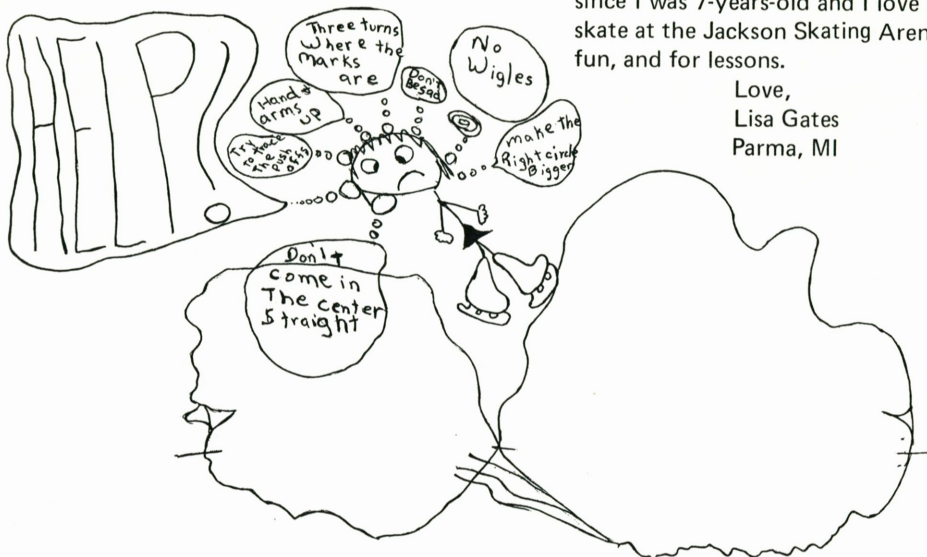 since I was 7-years-old and I love
skate at the Jackson Skating Aren
fun, and for lessons.
Love,
Lisa Gates
Parma, MI
HELP!
Three turns
Where the
marks
are
No
Wigles
Don't
Be sad
Hand &
arms
up
Try
to trace
the
push
offs
make the
Right circle
Bigger
Don't
come in
The center
Straight